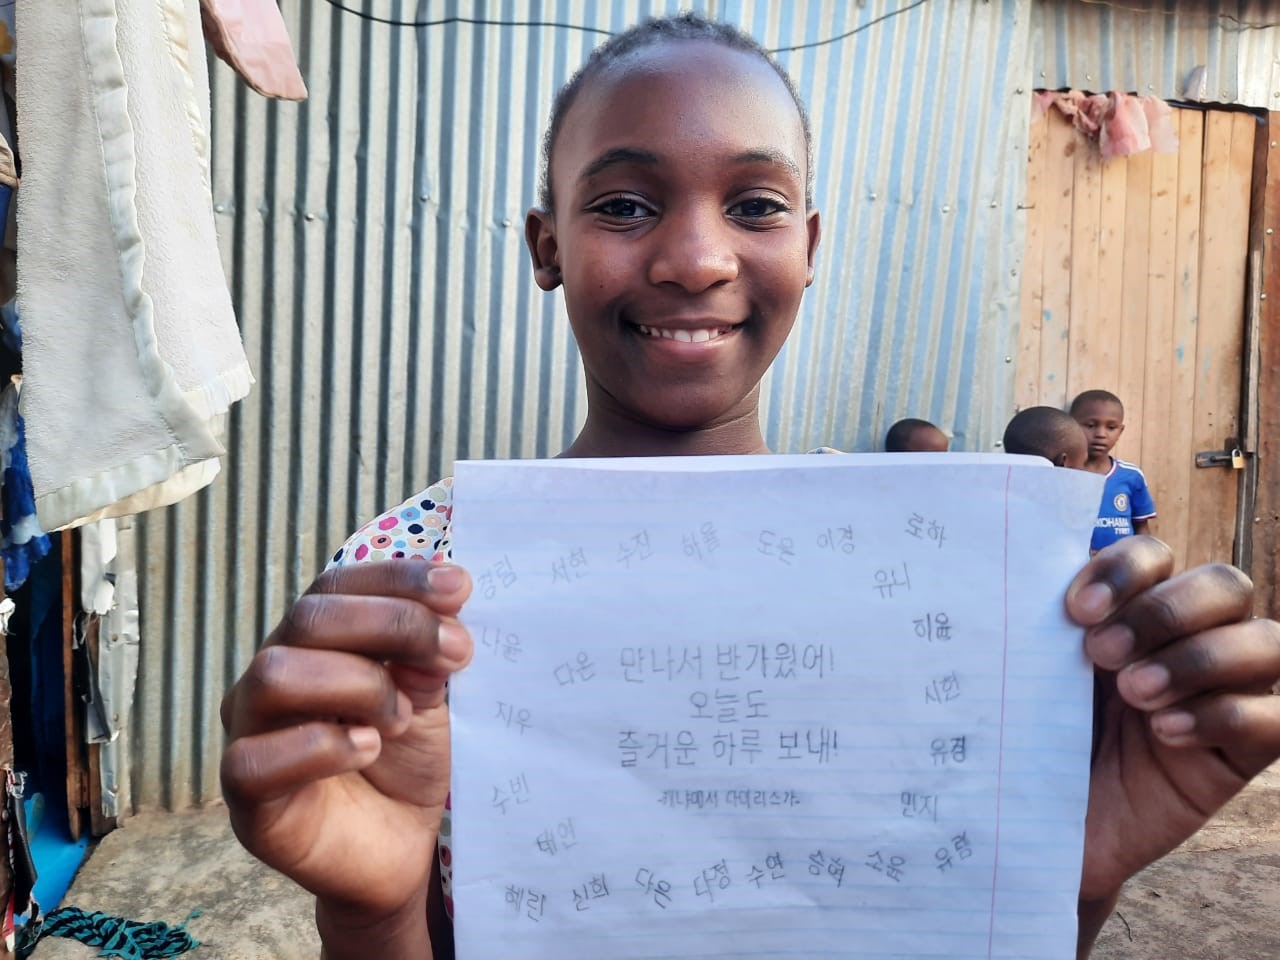 경림 서현 수진 하율 도윤 이경 로하
유니
나윤
히윤
다온 만나서 반가웠어!
시헌
오늘도
지우
즐거운 하루 보내!
유경
수빈
-케냐에서 다이리스가-
민지
태연
혜린 신희 다은 다정 수연 승혁 소윤 유림
YOKOHAMA
TYRES